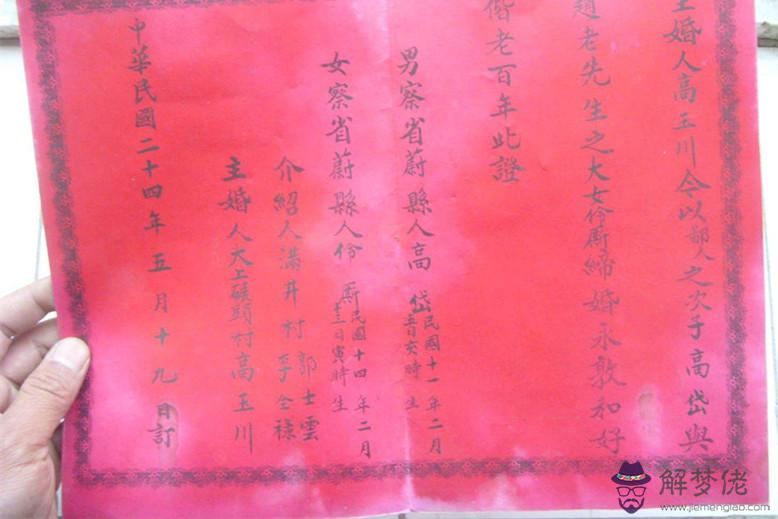 主婚人高玉川今以鄙人之次子高岱與
趙老先生之大女伶厮締婚永敦和好
偕老百年此證
男察省蔚縣人高岱民國十一年二月
亥時生
女察省蔚縣人伶厮民國十四年二月
寅時生
介紹人滿井村郭士雲
李全祿
主婚人大上碾頭村高玉川
中華民國二十四年五月十九日訂
解梦佬
www.jiemenglao.com